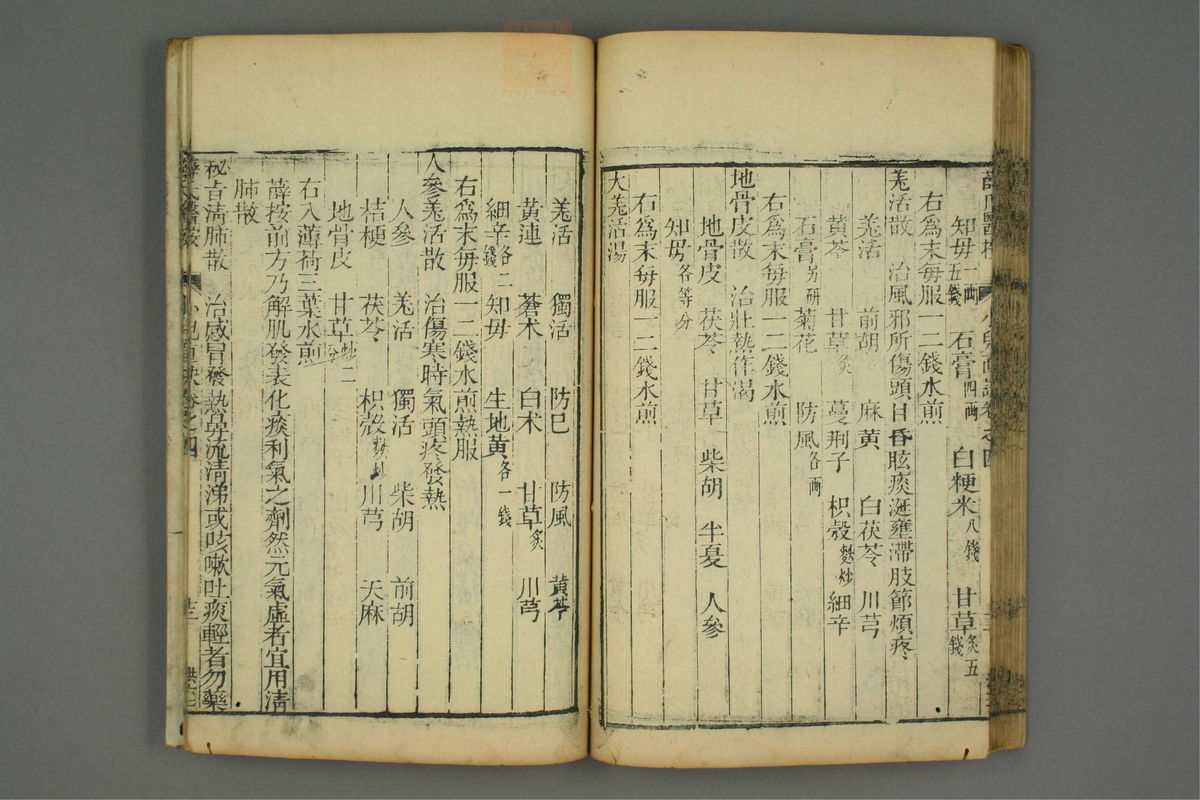 知母一兩五錢 石膏四兩 白粳米八錢 甘草炙五錢
右爲末每服一二錢水煎
羌活散 治風邪所傷頭目昏眩痰涎壅滯肢節煩疼
羌活 前胡 麻黃 白茯苓 川芎
黃芩 甘草炙 蔓荆子 枳殼麩炒 細辛
石膏另研 菊花 防風各一兩
右爲末每服一二錢水煎
地骨皮散 治壯熱作渴
地骨皮 茯苓 甘草 柴胡 半夏 人參
知母各等分
右爲末每服一二錢水煎
大羌活湯
羌活 獨活 防巳 防風 黃芩
黃連 蒼朮 白朮 甘草炙 川芎
細辛各二錢 知母 生地黃各一錢
右爲末每服一二錢水煎熱服
人參羌活散 治傷寒時氣頭疼發熱
人參 羌活 獨活 柴胡 前胡
桔梗 茯苓 枳殼麩炒 川芎 天麻
地骨皮 甘草炒二分
右入薄荷三葉水煎
薛按前方乃解肌發表化痰利氣之劑然元氣虛者宜用清
肺散
秘旨清肺散 治感冒發熱鼻流清涕或咳嗽吐痰輕者勿藥
薛氏醫按 小兒直訣卷之四